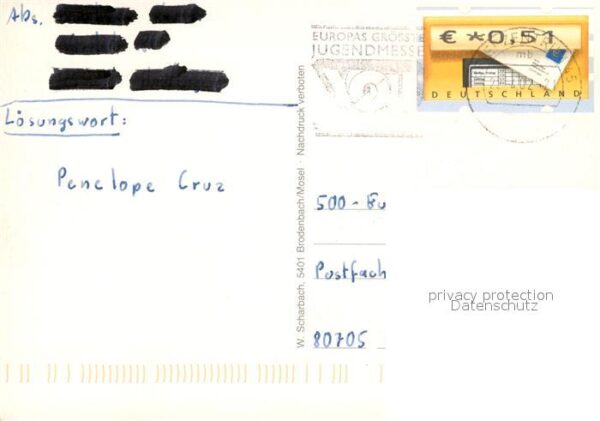 Abs.
Lösungswort:
Penelope Cruz
W. Scharbach, 5401 Brodenbach/Mosel · Nachdruck verboten
EUROPAS GRÖSST
JUGENDMESSE
€ *0,51
mb
DEUTSCHLAND
500-Eu
Postfach
80705
privacy protection
Datenschutz